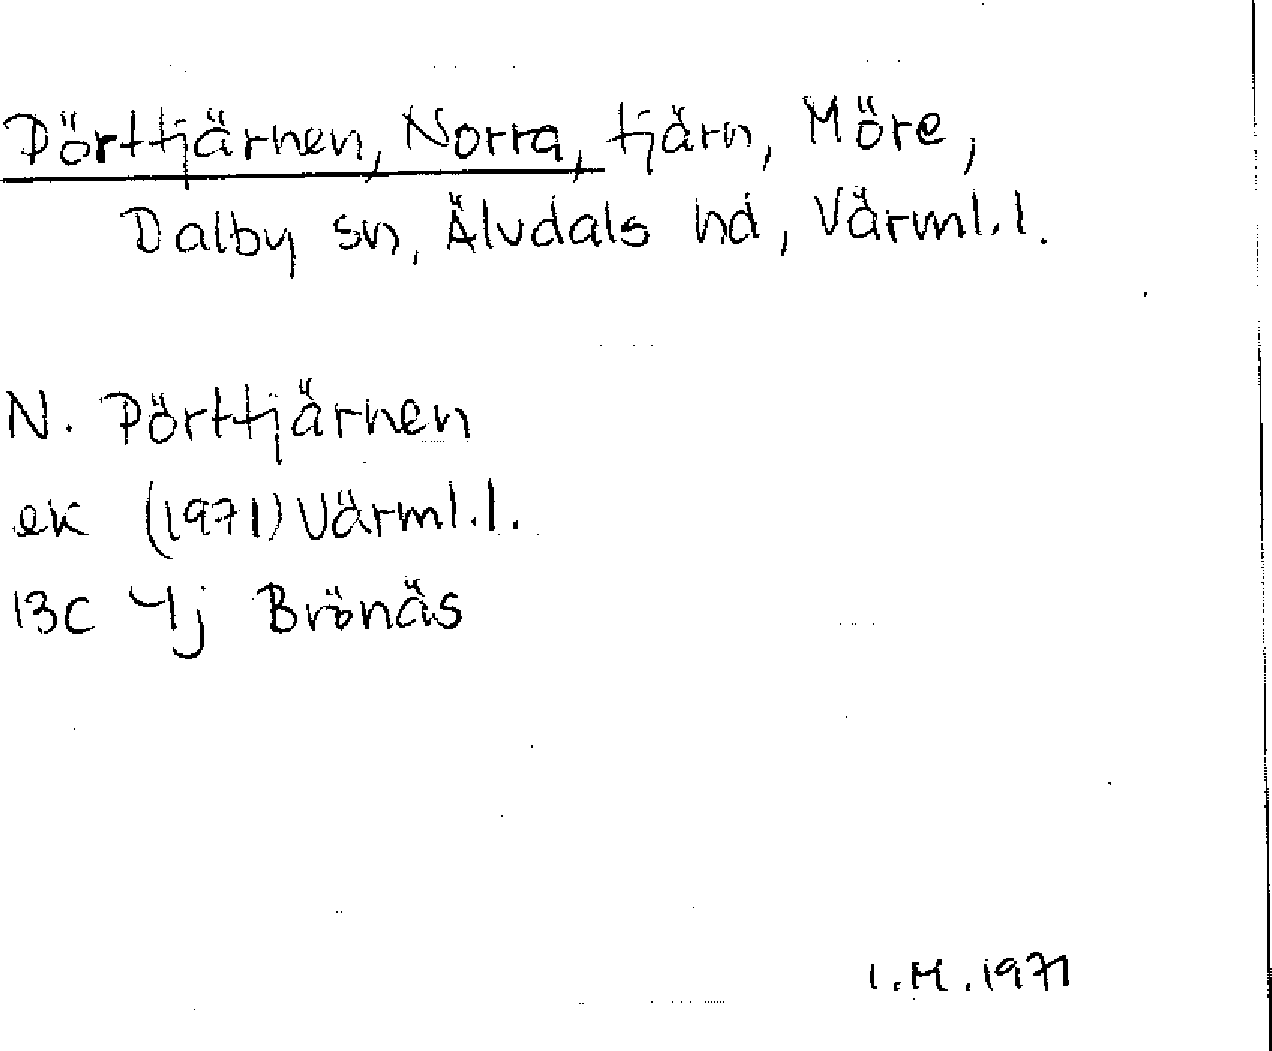 Pörttjärnen, Norra, tjärn, Möre,
Dalby sn, Älvdals hd, Värml.l.
N. Pörttjärnen
ek (1971) Värml.l.
13C 4j Brönäs
I.M.1971